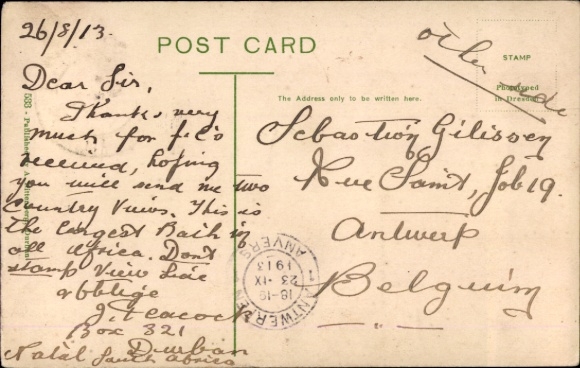 26/8/13.
POST CARD
other side
STAMP
Phototyped
in Dresden
The Address only to be written here.
Dear Sir,
Thanks very
much for p.c's
received, hoping
you will send me two
Country Views. This is
the largest Bath in
all Africa. Dont
stamp View Side
& oblige
J. Peacock
Box 321
Durban
Natal South Africa
Sebastion Gilissen
Rue Saint, Job 19.
Antwerp
Belguim
ANTWERPEN
1
18-19
23 IX
1913
ANVERS
533